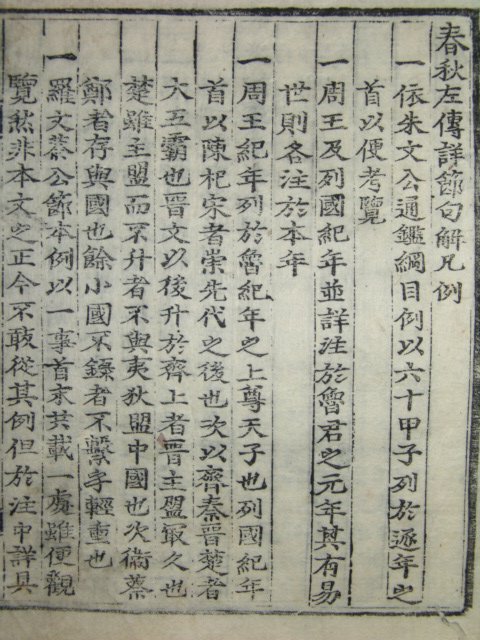 春秋左傳詳節句解凡例
一依朱文公通鑑綱目例以六十甲子列於逐年之
首以便考覽
一周王及列國紀年並詳注於魯君之元年其有易
世則各注於本年
一周王紀年列於魯紀年之上尊天子也列國紀年
首以陳杞宋者崇先代之後也次以齊秦晋楚者
大五霸也晋文以後升於齊上者晋主盟㝡久也
楚雖主盟而不升者不與夷狄盟中國也次衛蔡
鄭者存與國也餘小國不錄者不繫乎輕重也
一羅文蔡公節本例以一事首末共載一處雖便觀
覽然非本文之正今不敢從其例但於注中詳具